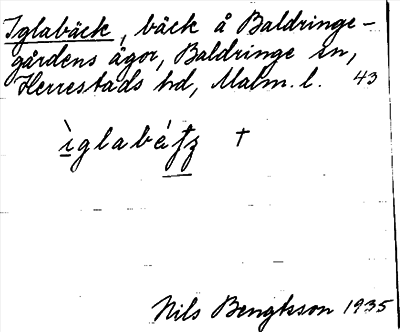 Iglabäck, bäck å Baldringe-
gårdens ägor, Baldringe sn,
Herrestads hd, Malm. l. 43
ìglabé †
Nils Bengtsson 1935